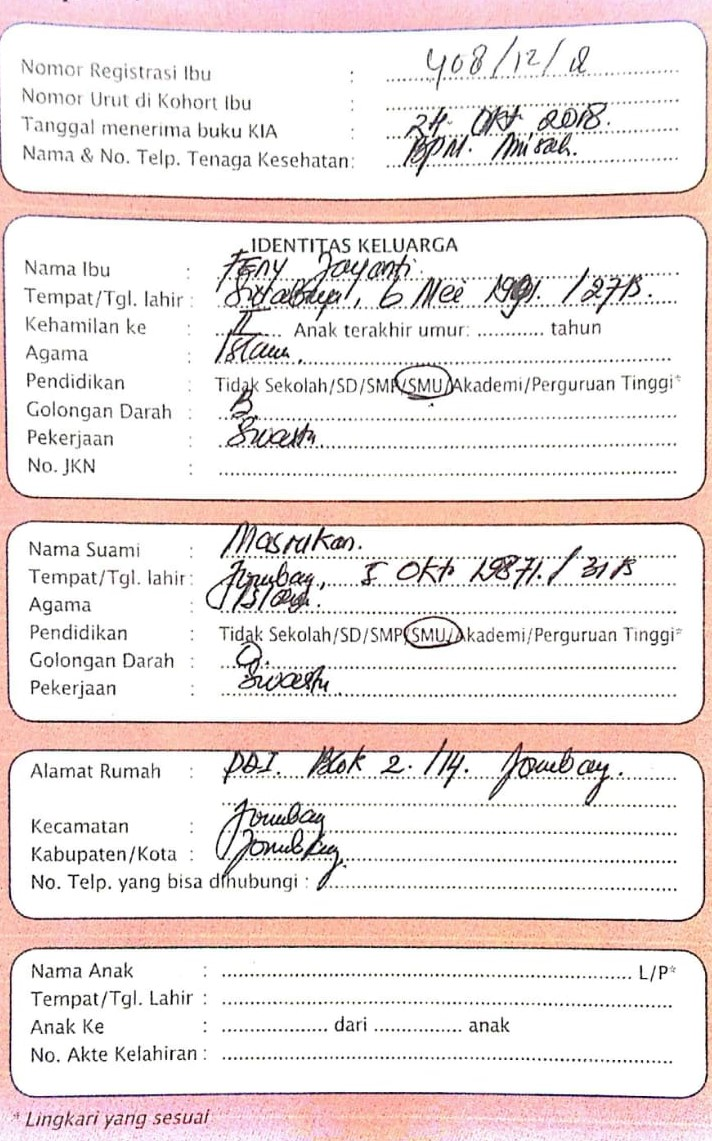 Nomor Registrasi Ibu : 408/12/18
Nomor Urut di Kohort Ibu :
Tanggal menerima buku KIA : 24 Okt 2018.
Nama & No. Telp. Tenaga Kesehatan: BPM. Misah.
IDENTITAS KELUARGA
Nama Ibu : Feny Jayanti.
Tempat/Tgl. lahir : Surabaya, 6 Mei 1991. /27
Kehamilan ke : II Anak terakhir umur: ............ tahun
Agama : Islam.
Pendidikan : Tidak Sekolah/SD/SMP/SMU/Akademi/Perguruan Tinggi*
Golongan Darah : B.
Pekerjaan : Swasta
No. JKN :
Nama Suami : Masrukan.
Tempat/Tgl. lahir: Jombang, Okt 1987. / 31
Agama : Islam.
Pendidikan : Tidak Sekolah/SD/SMP/SMU/Akademi/Perguruan Tinggi*
Golongan Darah : O.
Pekerjaan : Swasta
Alamat Rumah : Blok 2. /14. Jombang.
Kecamatan : Jombang
Kabupaten/Kota : Jombang.
No. Telp. yang bisa dihubungi :
Nama Anak : ............ L/P*
Tempat/Tgl. Lahir :
Anak Ke : ............ dari ............ anak
No. Akte Kelahiran :
* Lingkari yang sesuai